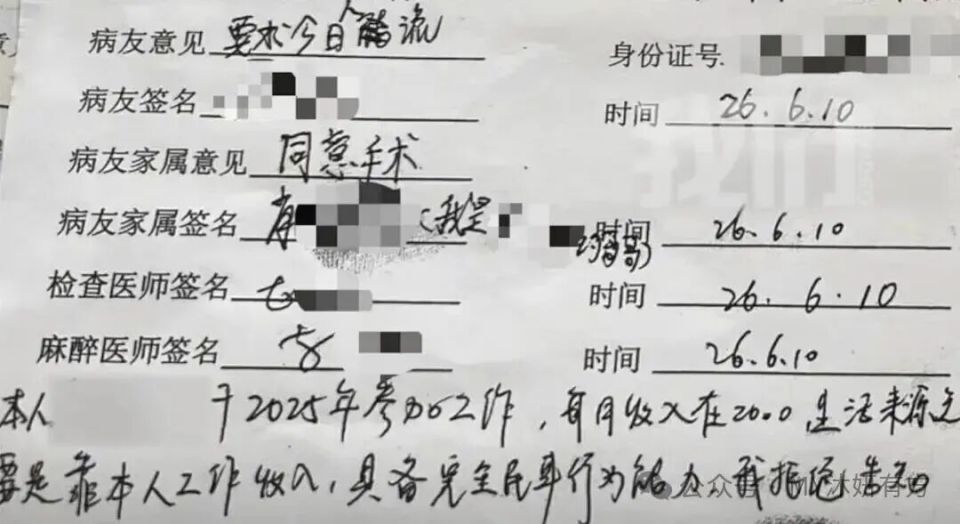 病友意见 要求今日人流 身份证号
病友签名 时间 26.6.10
病友家属意见 同意手术
病友家属签名 肖 (我是 的哥哥) 时间 26.6.10
检查医师签名 时间 26.6.10
麻醉医师签名 时间 26.6.10
本人 于2025年参加工作,每月收入在2000,生活来源主
要是靠本人工作收入,具备完全民事行为能力,我拒绝告知
我们
公众号 沐妍有好